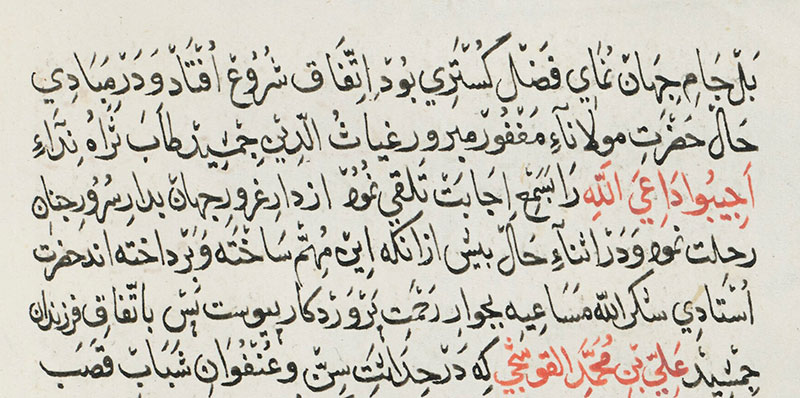 بَلْ جَامِ جِهَانْ نُمَايِ فَضْلْ كُسْتَرِي بُودْ اِتِّفَاقِ شُرُوعْ اُفْتَادْ وَ دَرْ مَبَادِي
حَالْ حَضْرَتِ مولاناَءِ مَغْفُورْ مبرور غیاثُ الدِّينِ جمشید طَابَ ثَرَاهُ نِدَاءِ
اَجِيبُوا دَاعِيَ اللّٰهِ رَا بِسَمْعِ اِجَابَتْ تَلَقِّي نمُودْ از دارِ غرورِ جهانْ بدارِ سُرُورِ جنان
رحلت نمود وَ دَرْ اثناَءِ حَالْ پیش ازانکه اینْ مُهِمّْ سَاخْتَه وَ پَرْدَاخته اند حضرت
اُسْتَادِي شکر اللّٰه مَسَاعِیه بجوارِ رَحْمَتِ پَرْوَرْدکار پیوست پَسْ باتّفاقِ فرزندان
جمشید عَلِيّ بْنِ مُحَمَّد القُوشْجِي کِه دَرْ حِدَاثَتِ سِنّْ وَ عُنْفُوَانِ شَبَابْ قَصَبَ